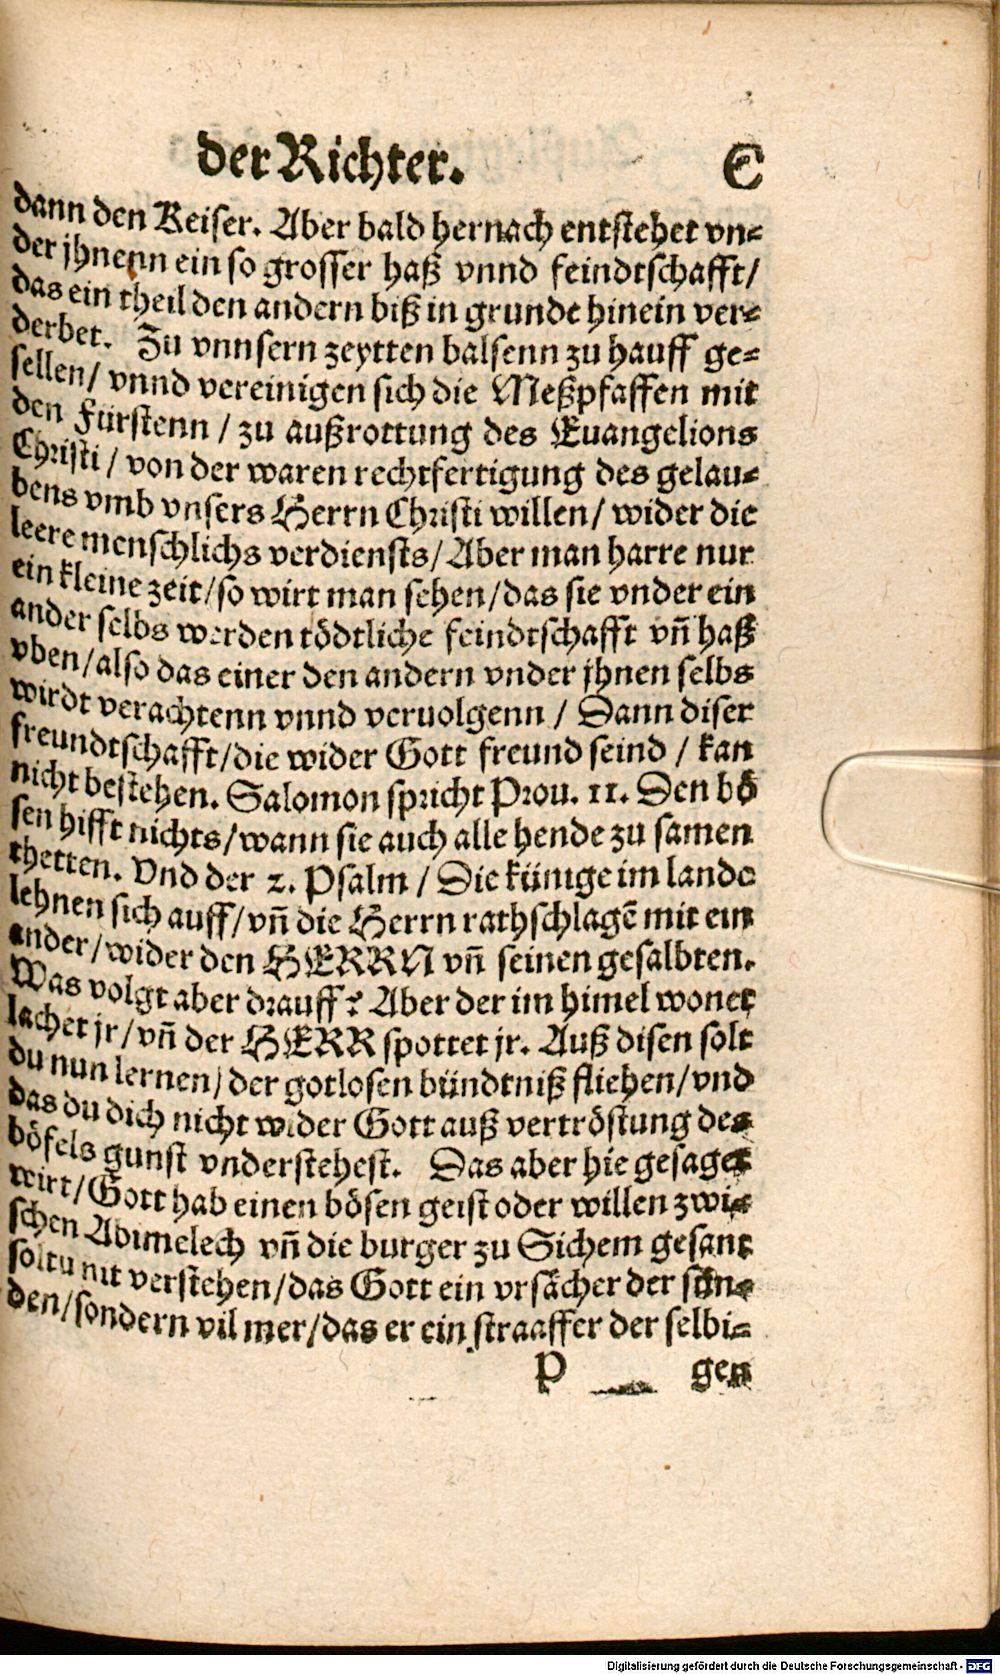 der Richter. C
dann den Keiser. Aber bald hernach entstehet vn⸗
der jhnenn ein so grosser haß vnnd feindtschafft/
das ein theil den andern biß in grunde hinein ver⸗
derbet. Zu vnnsern zeytten balsenn zu hauff ge⸗
sellen/ vnnd vereinigen sich die Meßpfaffen mit
den Fürstenn / zu außrottung des Euangelions
Christi / von der waren rechtfertigung des gelau⸗
bens vmb vnsers Herrn Christi willen/ wider die
leere menschlichs verdiensts/ Aber man harre nur
ein kleine zeit/so wirt man sehen/das sie vnder ein
ander selbs werden tödtliche feindtschafft vn̄ haß
vben/also das einer den andern vnder jhnen selbs
wirdt verachtenn vnnd veruolgenn / Dann diser
freundtschafft/die wider Gott freund seind / kan
nicht bestehen. Salomon spricht Prou. 11. Den bö
sen hifft nichts/wann sie auch alle hende zu samen
thetten. Vnd der 2. Psalm / Die künige im lande
lehnen sich auff/vn̄ die Herrn rathschlagē mit ein
ander/wider den HERRN vn̄ seinen gesalbten.
Was volgt aber drauff? Aber der im himel wonet
lachet jr/vn̄ der HERR spottet jr. Auß disen solt
du nun lernen/ der gotlosen bündtniß fliehen/vnd
das du dich nicht wider Gott auß vertröstung des
böfels gunst vnderstehest. Das aber hie gesaget
wirt/Gott hab einen bösen geist oder willen zwi⸗
schen Abimelech vn̄ die burger zu Sichem gesant
soltu nit verstehen/das Gott ein vrsächer der sün⸗
den/sondern vil mer/das er ein straaffer der selbi⸗
P gen
Digitalisierung gefördert durch die Deutsche Forschungsgemeinschaft - DFG